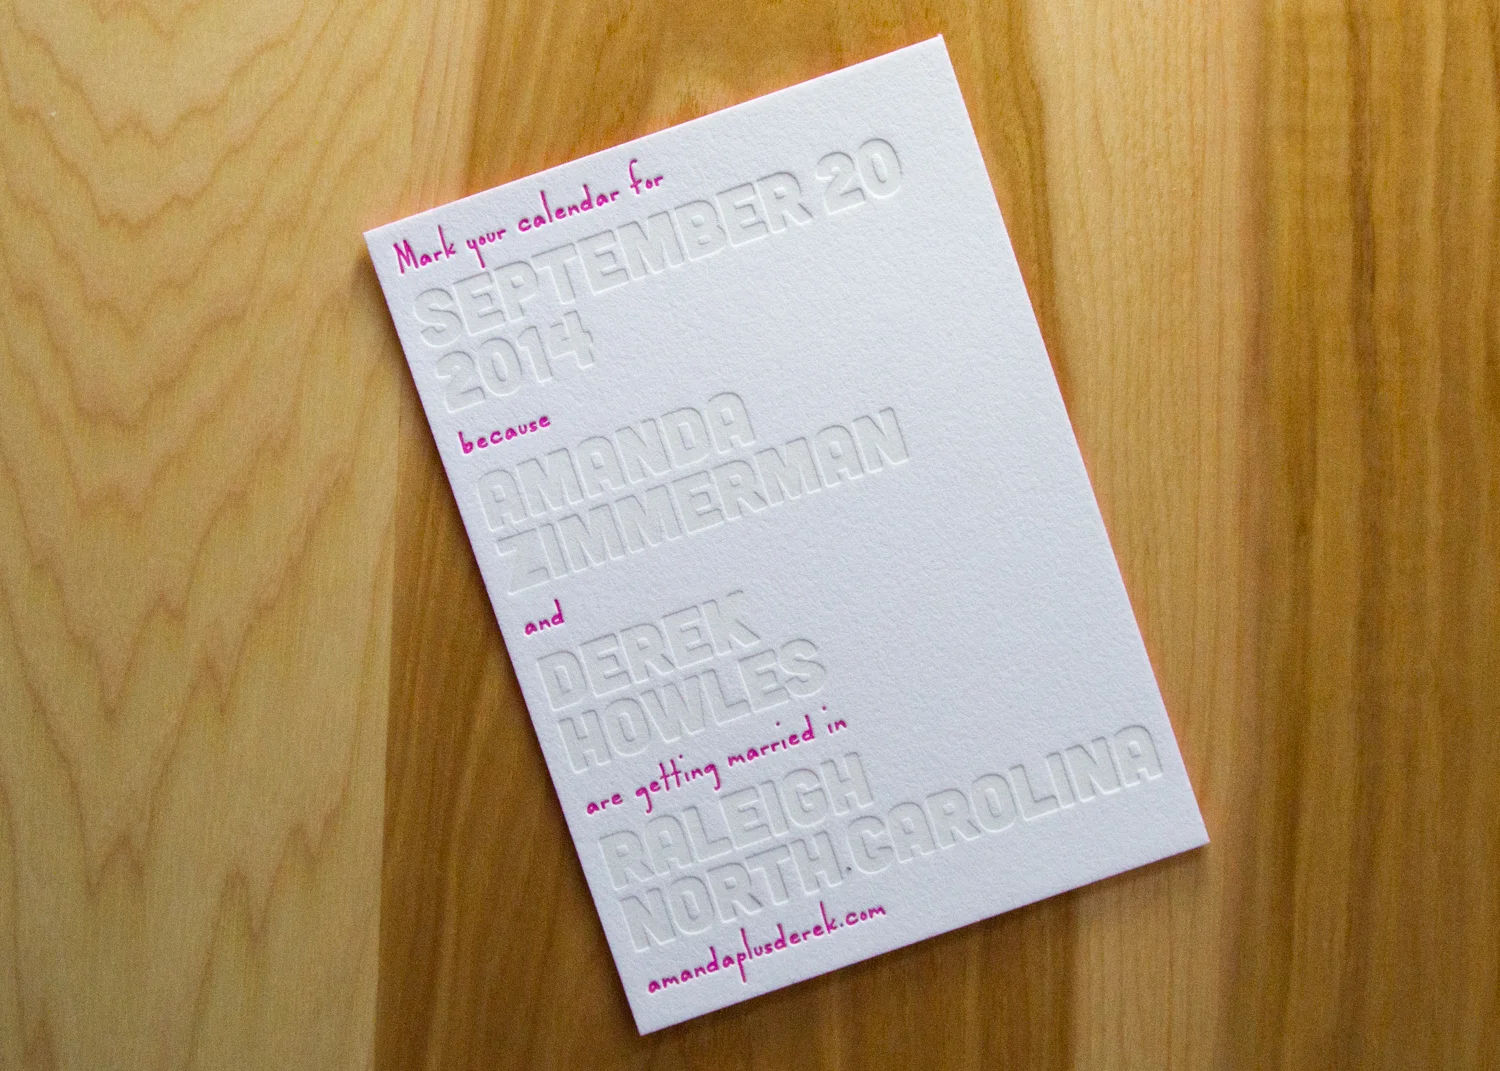 Mark your calendar for
SEPTEMBER 20
2014
because
AMANDA
ZIMMERMAN
and
DEREK
HOWLES
are getting married in
RALEIGH
NORTH CAROLINA
amandaplusderek.com